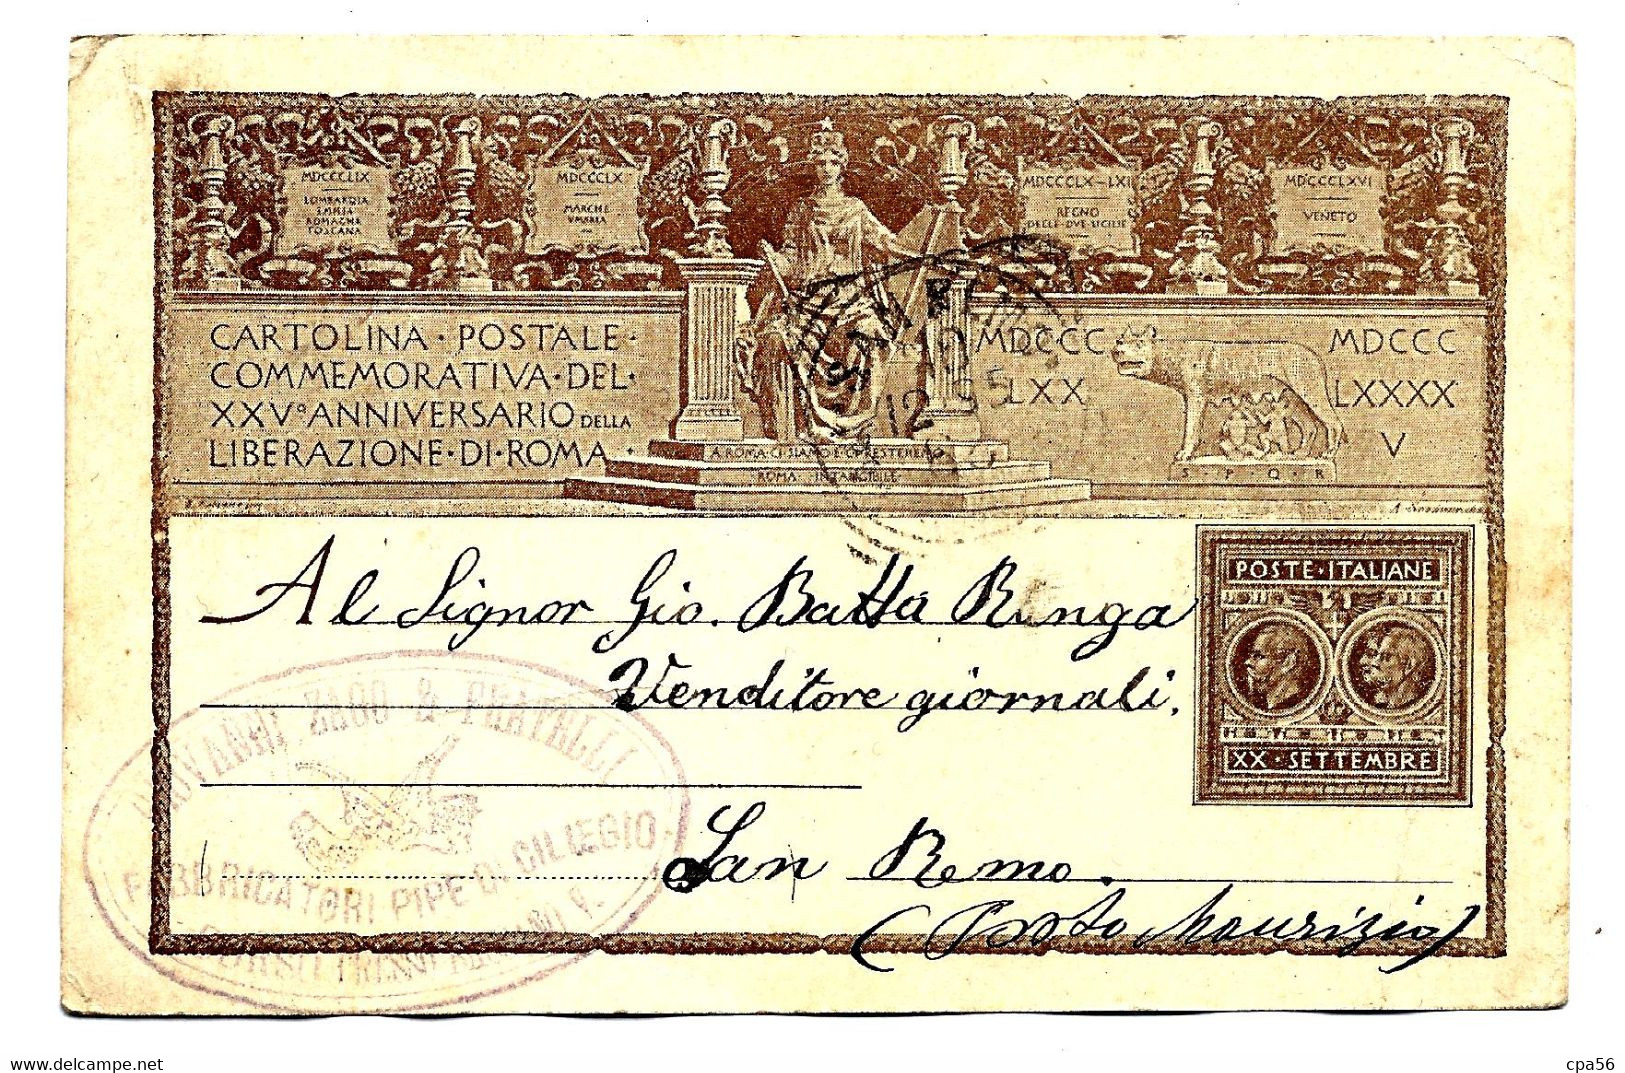 MDCCCLIX
LOMBARDIA
EMILIA
ROMAGNA
TOSCANA
MDCCCLX
MARCHE
VMBRIA
MDCCCLX-LXI
REGNO
DELLE·DVE·SICILIE
MDCCCLXVI
VENETO
CARTOLINA·POSTALE·
COMMEMORATIVA·DEL·
XXV°ANNIVERSARIO DELLA
LIBERAZIONE·DI·ROMA
A·ROMA·CI·SIAMO·E·CI·RESTEREMO
ROMA·INTANGIBILE
MDCCC
LXX
MDCCC
LXXXX
V
S·P·Q·R
12 95
POSTE·ITALIANE
XX·SETTEMBRE
Al Signor Gio. Batta Renga
Venditore giornali.
San Remo.
(Porto Maurizio)
GIOVANNI ZAGO & FRATELLI
FABBRICATORI PIPE DI CILIEGIO
delcampe.net
cpa56